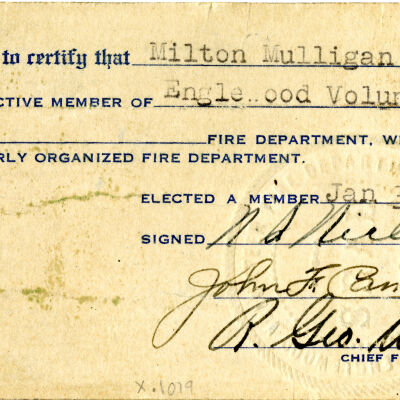 to certify that Milton Mulligan
CTIVE MEMBER OF Englewood Volun
FIRE DEPARTMENT, W
RLY ORGANIZED FIRE DEPARTMENT.
ELECTED A MEMBER Jan
SIGNED N. A.
John F.
R. Geo.
CHIEF F
X.1019